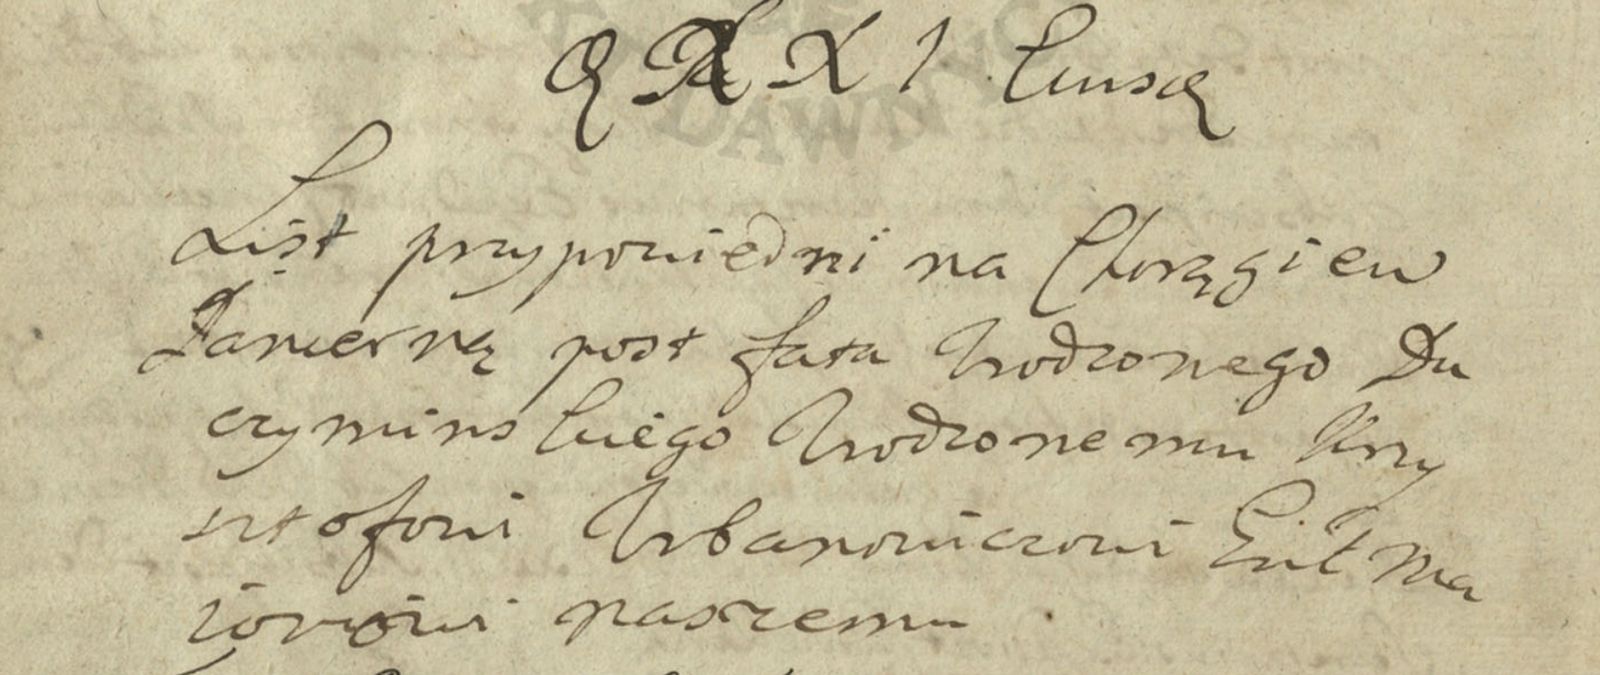 List przypowiedni na Chorągiew
Pancerną post fata Urodzonego Du
czyminskiego Urodzonemu Krzy
sztofowi Urbanowiczowi Ma
iorowi naszemu